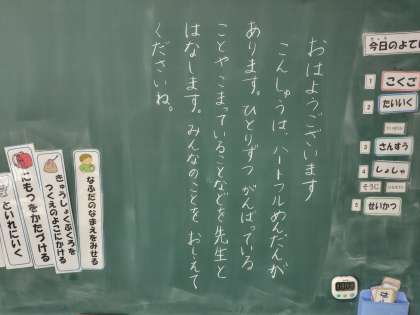 おはようございます
こんしゅうは、ハートフルめんだんが
あります。ひとりずつ がんばっている
ことや こまっていることなどを先生と
はなします。みんなのことを おしえて
くださいね。
今日のよてい
1 こくご
2 たいいく
3 さんすう
4 しょしゃ
そうじ
5 せいかつ
なふだのなまえをみせる
きゅうしょくぶくろを
つくえのよこにかける
にもつをかたづける
といれにいく